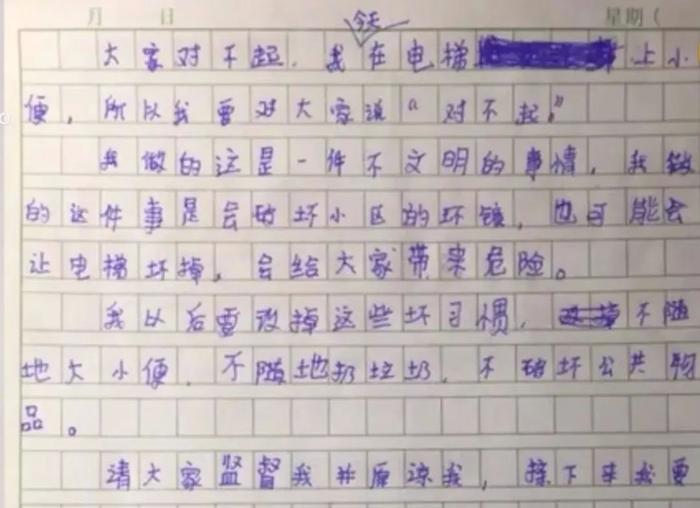 月 日 星期（
今天
大家对不起，我在电梯上小
便，所以我要对大家说“对不起。”
我做的这是一件不文明的事情，我做
的这件事是会破坏小区的环镜，也可能会
让电梯坏掉，会给大家带来危险。
我以后要改掉这些坏习惯，不随
地大小便，不随地扔垃圾，不破坏公共物
品。
请大家监督我并原谅我，接下来我要